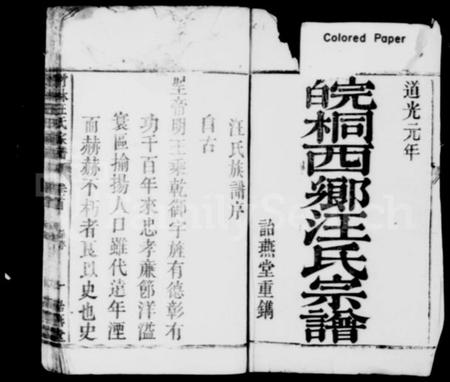 Colored Paper
道光元年
皖桐西鄉汪氏宗譜
詒燕堂重鐫
汪氏族譜序
自古
聖帝明王乘乾御宇旌有德彰有
功千百年來忠孝廉節洋溢
寰區揄揚人口雖代遠年湮
而赫赫不朽者良以史也史
FamilySearch